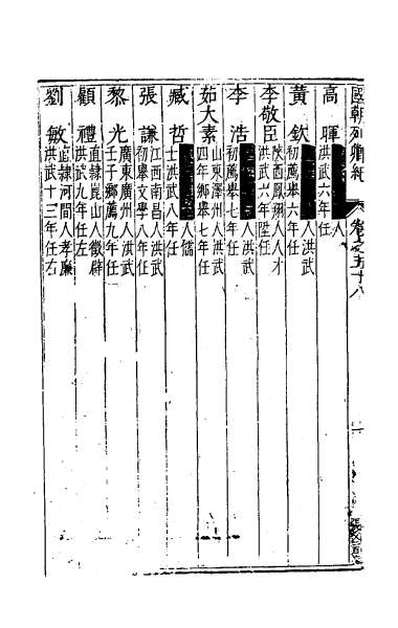 國朝列卿紀 卷之五十八
高暉 人
洪武六年任
黃欽 人洪武
初薦舉六年任
李敬臣 陝西鳳翔人人才
洪武六年陞任
李浩 人洪武
初薦舉七年任
茹太素 山東澤州人洪武
四年鄉舉七年任
臧哲 人儒
士洪武八年任
張謙 江西南昌人洪武
初舉文學八年任
黎光 廣東廣州人洪武
壬子鄉薦九年任
顧禮 直隸崑山人徵辟
洪武九年任左
劉敏 直隸河間人孝廉
洪武十三年任右